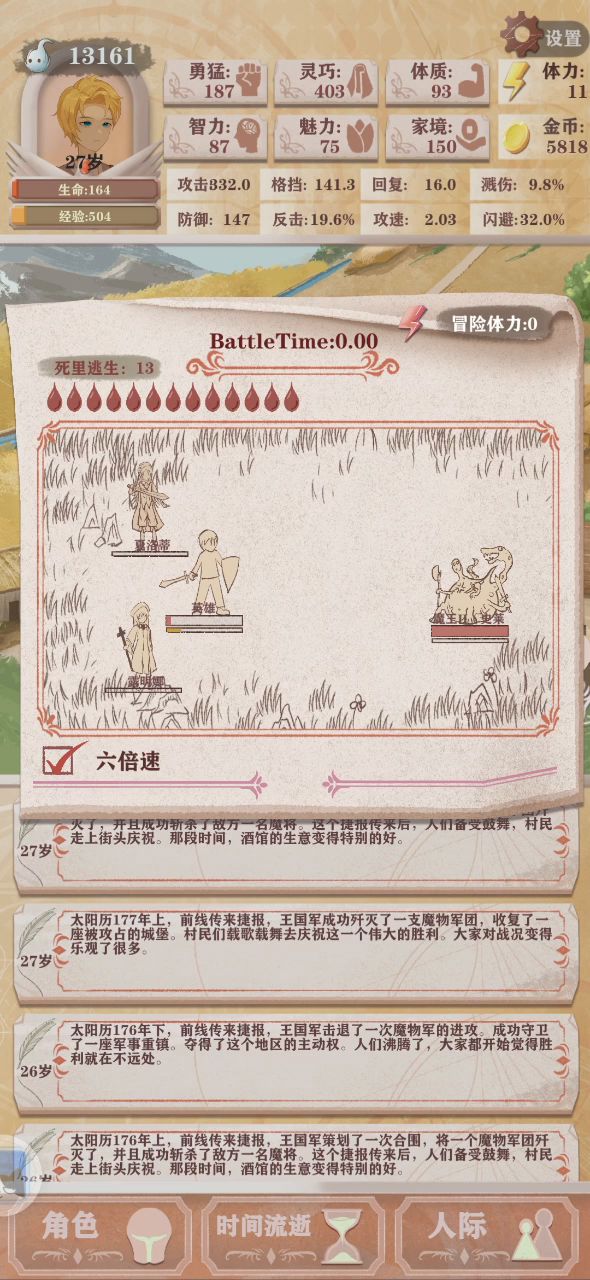 13161
设置
勇猛:
187
灵巧:
403
体质:
93
体力:
11
智力:
87
魅力:
75
家境:
150
金币:
5818
27岁
生命:164
经验:504
攻击332.0
格挡: 141.3
回复: 16.0
溅伤: 9.8%
防御: 147
反击:19.6%
攻速: 2.03
闪避:32.0%
冒险体力:0
BattleTime:0.00
死里逃生: 13
夏洛蒂
英雄
六倍速
灭了，并且成功斩杀了敌方一名魔将。这个捷报传来后，人们备受鼓舞，村民
走上街头庆祝。那段时间，酒馆的生意变得特别的好。
27岁
太阳历177年上，前线传来捷报，王国军成功歼灭了一支魔物军团，收复了一
座被攻占的城堡。村民们载歌载舞去庆祝这一个伟大的胜利。大家对战况变得
乐观了很多。
27岁
太阳历176年下，前线传来捷报，王国军击退了一次魔物军的进攻。成功守卫
了一座军事重镇。夺得了这个地区的主动权。人们沸腾了，大家都开始觉得胜
利就在不远处。
26岁
太阳历176年上，前线传来捷报，王国军策划了一次合围，将一个魔物军团歼
灭了，并且成功斩杀了敌方一名魔将。这个捷报传来后，人们备受鼓舞，村民
走上街头庆祝。那段时间，酒馆的生意变得特别的好。
26岁
角色
时间流逝
人际